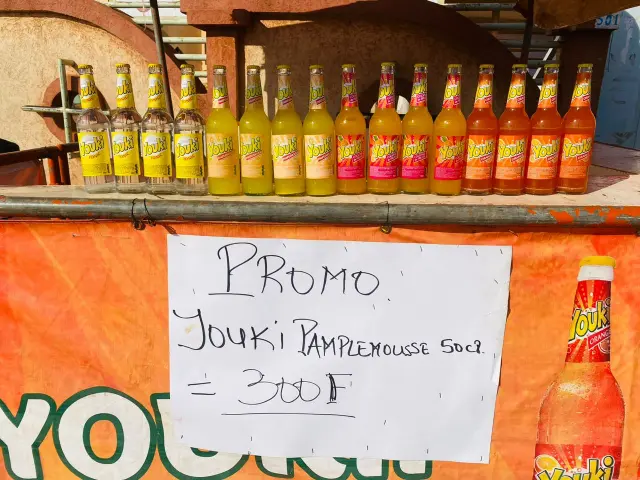 581
Youki Youki Youki Youki Youki Youki Youki Youki Youki Youki Youki Youki Youki Youki Youki Youki
PROMO.
YOUKI PAMPLEMOUSSE 50cl.
= 300F
YOUKI
Youki
ORANGE
Youki